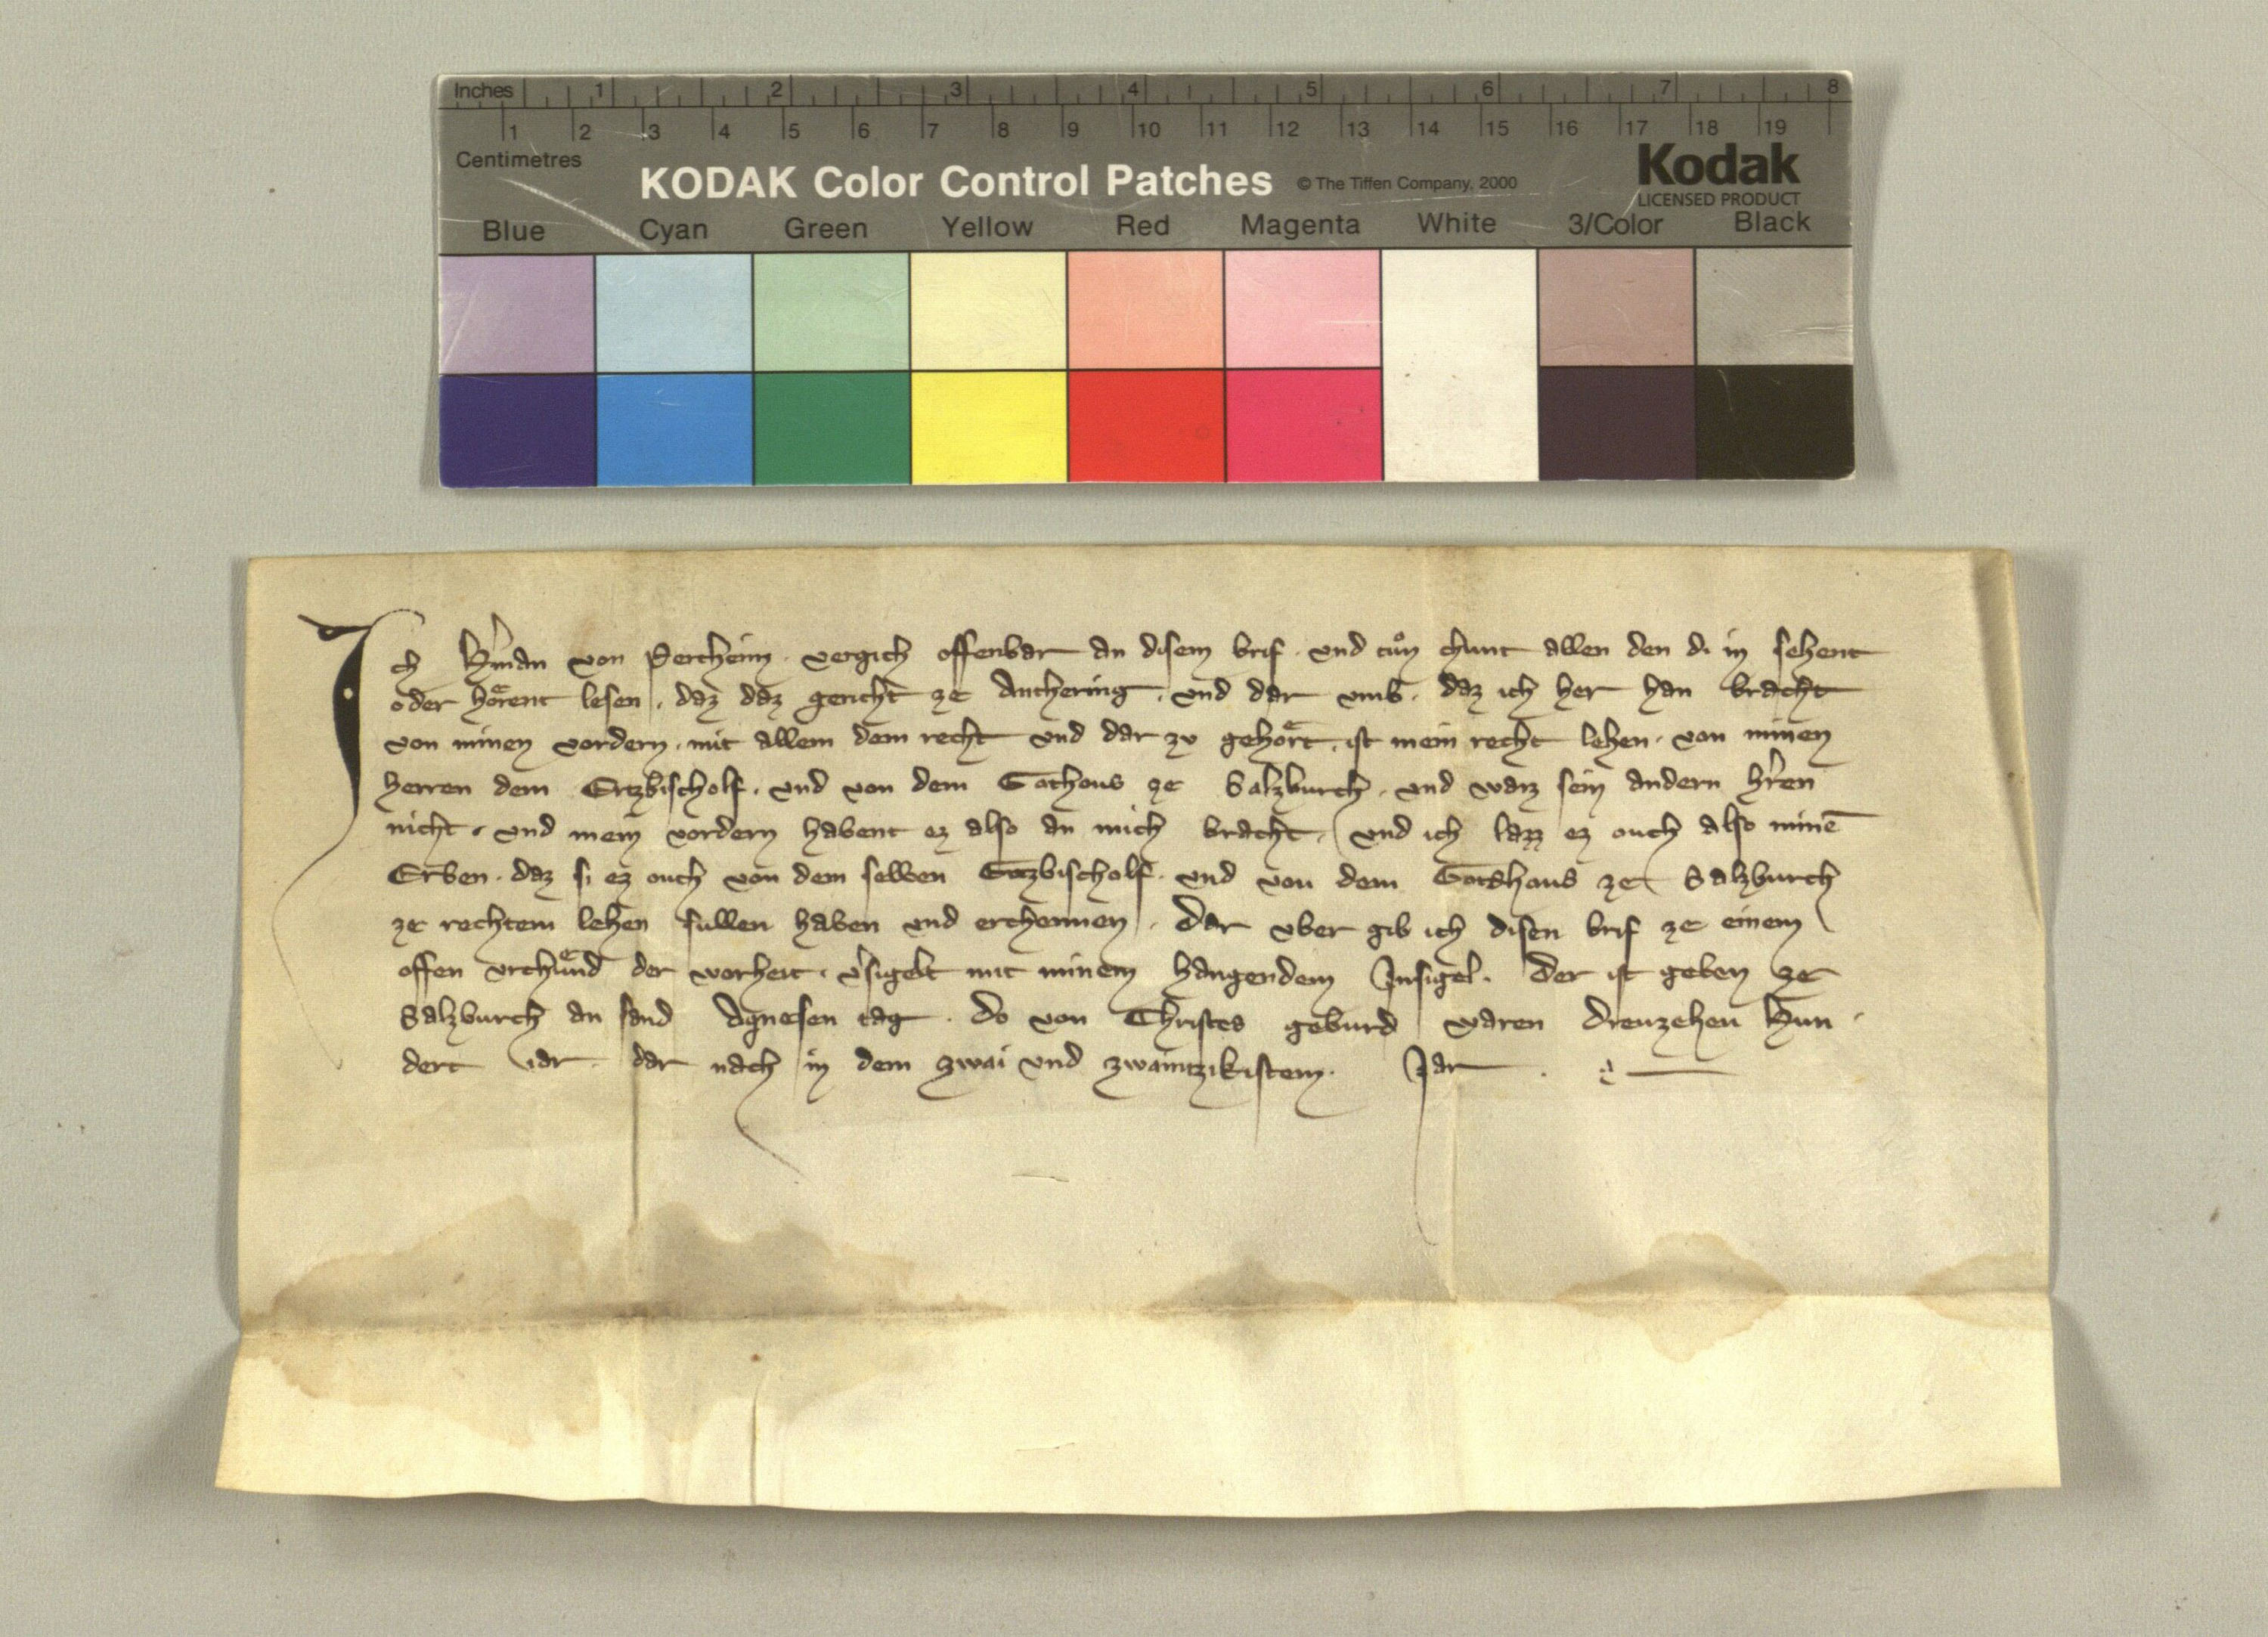 Inches 1 2 3 4 5 6 7 8
1 2 3 4 5 6 7 8 9 10 11 12 13 14 15 16 17 18 19
Centimetres
KODAK Color Control Patches © The Tiffen Company, 2000 Kodak
LICENSED PRODUCT
Blue Cyan Green Yellow Red Magenta White 3/Color Black
Ich H'man von Percheim · vergich offenbar an disem brif · vnd tuͦn chunt allen den di in sehent
oder hoͤrent lesen · daz daz gericht ze Anthering · vnd dar vmb · daz ich her han bracht
von minen vordern · mit allem dem recht vnd dar zv gehoͤrt · ist mein recht lehen · von minen
herren dem Ertzbischolf · vnd von dem Gothous ze Salzburch · vnd warz sein andern h'ren
nicht · vnd mein vordern habent ez also an mich bracht · vnd ich lazz ez ouch also minē
Erben · daz si ez ouch von dem selben Ertzbischolf · vnd von dem Gotshaus ze Salzburch
ze rechtem lehen sullen haben vnd erchennen · Dar vber gib ich disen brif ze einem
offen vrchuͤnd der worheit · v'sigelt mit minem hangendem Insigel · Der ist geben ze
Salzburch an sand Agnesen tag · Do von Christes geburd waren dreuzehen Hun ·
dert iar · dar nach in dem zwai vnd zwaintzikistem · Jar ·